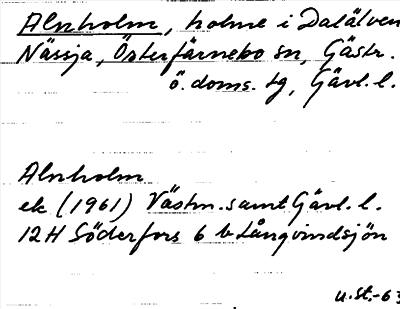 Alnholm, holme i Dalälven
Nässja, Österfärnebo sn, Gästr.
ö. doms. tg, Gävl. l.
Alnholm
ek (1961) Västm. samt Gävl. l.
12H Söderfors 6 b Långvindsjön
u.st.-63